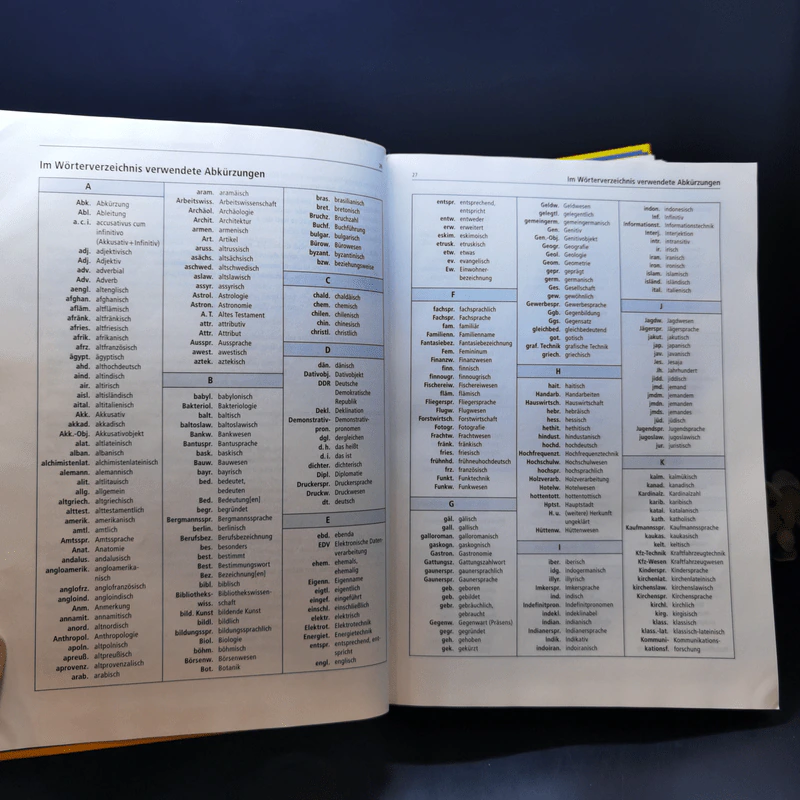 Im Wörterverzeichnis verwendete Abkürzungen
A
Abk. Abkürzung
Abl. Ableitung
a. c. i. accusativus cum
infinitivo
(Akkusativ+Infinitiv)
adj. adjektivisch
Adj. Adjektiv
adv. adverbial
Adv. Adverb
aengl. altenglisch
afghan. afghanisch
afläm. altflämisch
afränk. altfränkisch
afries. altfriesisch
afrik. afrikanisch
afrz. altfranzösisch
ägypt. ägyptisch
ahd. althochdeutsch
aind. altindisch
air. altirisch
aisl. altisländisch
aital. altitalienisch
Akk. Akkusativ
akkad. akkadisch
Akk.-Obj. Akkusativobjekt
alat. altlateinisch
alban. albanisch
alchimistenlat. alchimistenlateinisch
alemann. alemannisch
alit. altlitauisch
allg. allgemein
altgriech. altgriechisch
alttest. alttestamentlich
amerik. amerikanisch
amtl. amtlich
Amtsspr. Amtssprache
Anat. Anatomie
andalus. andalusisch
angloamerik. angloamerika-
nisch
anglofrz. anglofranzösisch
angloind. angloindisch
Anm. Anmerkung
annamit. annamitisch
anord. altnordisch
Anthropol. Anthropologie
apoln. altpolnisch
apreuß. altpreußisch
aprovenz. altprovenzalisch
arab. arabisch
aram. aramäisch
Arbeitswiss. Arbeitswissenschaft
Archäol. Archäologie
Archit. Architektur
armen. armenisch
Art. Artikel
aruss. altrussisch
asächs. altsächsisch
aschwed. altschwedisch
aslaw. altslawisch
assyr. assyrisch
Astrol. Astrologie
Astron. Astronomie
A. T. Altes Testament
attr. attributiv
Attr. Attribut
Ausspr. Aussprache
awest. awestisch
aztek. aztekisch
B
babyl. babylonisch
Bakteriol. Bakteriologie
balt. baltisch
baltoslaw. baltoslawisch
Bankw. Bankwesen
Bantuspr. Bantusprache
bask. baskisch
Bauw. Bauwesen
bayr. bayrisch
bed. bedeutet,
bedeuten
Bed. Bedeutung[en]
begr. begründet
Bergmannsspr. Bergmannssprache
berlin. berlinisch
Berufsbez. Berufsbezeichnung
bes. besonders
best. bestimmt
Best. Bestimmungswort
Bez. Bezeichnung[en]
bibl. biblisch
Bibliotheks- Bibliothekswissen-
wiss. schaft
bild. Kunst bildende Kunst
bildl. bildlich
bildungsspr. bildungssprachlich
Biol. Biologie
böhm. böhmisch
Börsenw. Börsenwesen
Bot. Botanik
bras. brasilianisch
bret. bretonisch
Bruchz. Bruchzahl
Buchf. Buchführung
bulgar. bulgarisch
Bürow. Bürowesen
byzant. byzantinisch
bzw. beziehungsweise
C
chald. chaldäisch
chem. chemisch
chilen. chilenisch
chin. chinesisch
christl. christlich
D
dän. dänisch
Dativobj. Dativobjekt
DDR Deutsche
Demokratische
Republik
Dekl. Deklination
Demonstrativ- Demonstrativ-
pron. pronomen
dgl. dergleichen
d. h. das heißt
d. i. das ist
dichter. dichterisch
Dipl. Diplomatie
Druckerspr. Druckersprache
Druckw. Druckwesen
dt. deutsch
E
ebd. ebenda
EDV Elektronische Daten
verarbeitung
ehem. ehemals,
ehemalig
Eigenn. Eigenname
eigtl. eigentlich
eingef. eingeführt
einschl. einschließlich
elektr. elektrisch
Elektrot. Elektrotechnik
Energiet. Energietechnik
entspr. entsprechend, ent-
spricht
engl. englisch
27
Im Wörterverzeichnis verwendete Abkürzungen
entspr. entsprechend,
entspricht
entw. entweder
erw. erweitert
eskim. eskimoisch
etrusk. etruskisch
etw. etwas
ev. evangelisch
Ew. Einwohner-
bezeichnung
F
fachspr. fachsprachlich
Fachspr. Fachsprache
fam. familiär
Familienn. Familienname
Fantasiebez. Fantasiebezeichnung
Fem. Femininum
Finanzw. Finanzwesen
finn. finnisch
finnougr. finnougrisch
Fischereiw. Fischereiwesen
fläm. flämisch
Fliegerspr. Fliegersprache
Flugw. Flugwesen
Forstwirtsch. Forstwirtschaft
Fotogr. Fotografie
Frachtw. Frachtwesen
fränk. fränkisch
fries. friesisch
frühnhd. frühneuhochdeutsch
frz. französisch
Funkt. Funktechnik
Funkw. Funkwesen
G
gäl. gälisch
gall. gallisch
galloroman. galloromanisch
gaskogn. gaskognisch
Gastron. Gastronomie
Gattungsz. Gattungszahlwort
gaunerspr. gaunersprachlich
Gaunerspr. Gaunersprache
geb. geboren
geb. gebildet
gebr. gebräuchlich,
gebraucht
Gegenw. Gegenwart (Präsens)
gegr. gegründet
geh. gehoben
gek. gekürzt
Geldw. Geldwesen
gelegtl. gelegentlich
gemeingerm. gemeingermanisch
Gen. Genitiv
Gen.-Obj. Genitivobjekt
Geogr. Geografie
Geol. Geologie
Geom. Geometrie
gepr. geprägt
germ. germanisch
Ges. Gesellschaft
gew. gewöhnlich
Gewerbespr. Gewerbesprache
Ggb. Gegenbildung
Ggs. Gegensatz
gleichbed. gleichbedeutend
got. gotisch
graf. Technik grafische Technik
griech. griechisch
H
hait. haitisch
Handarb. Handarbeiten
Hauswirtsch. Hauswirtschaft
hebr. hebräisch
hess. hessisch
hethit. hethitisch
hindust. hindustanisch
hochd. hochdeutsch
Hochfrequenzt. Hochfrequenztechnik
Hochschulw. Hochschulwesen
hochspr. hochsprachlich
Holzverarb. Holzverarbeitung
Hotelw. Hotelwesen
hottentott. hottentottisch
Hptst. Hauptstadt
H. u. (weitere) Herkunft
ungeklärt
Hüttenw. Hüttenwesen
I
iber. iberisch
idg. indogermanisch
illyr. illyrisch
Imkerspr. Imkersprache
ind. indisch
Indefinitpron. Indefinitpronomen
indekl. indeklinabel
indian. indianisch
Indianerspr. Indianersprache
indik. indikativ
indoiran. indoiranisch
indon. indonesisch
Inf. Infinitiv
Informationst. Informationstechnik
Interj. Interjektion
intr. intransitiv
ir. irisch
iran. iranisch
iron. ironisch
islam. islamisch
isländ. isländisch
ital. italienisch
J
Jagdw. Jagdwesen
Jägerspr. Jägersprache
jakut. jakutisch
jap. japanisch
jav. javanisch
Jes. Jesaja
Jh. Jahrhundert
jidd. jiddisch
jmd. jemand
jmdm. jemandem
jmdn. jemanden
jmds. jemandes
jüd. jüdisch
Jugendspr. Jugendsprache
jugoslaw. jugoslawisch
jur. juristisch
K
kalm. kalmükisch
kanad. kanadisch
Kardinalz. Kardinalzahl
karib. karibisch
katal. katalanisch
kath. katholisch
Kaufmannsspr. Kaufmannssprache
kaukas. kaukasisch
kelt. keltisch
Kfz-Technik Kraftfahrzeugtechnik
Kfz-Wesen Kraftfahrzeugwesen
Kinderspr. Kindersprache
kirchenlat. kirchenlateinisch
kirchenslaw. kirchenslawisch
Kirchenspr. Kirchensprache
kirchl. kirchlich
kirg. kirgisisch
klass. klassisch
klass.-lat. klassisch-lateinisch
Kommuni- Kommunikations-
kationsf. forschung